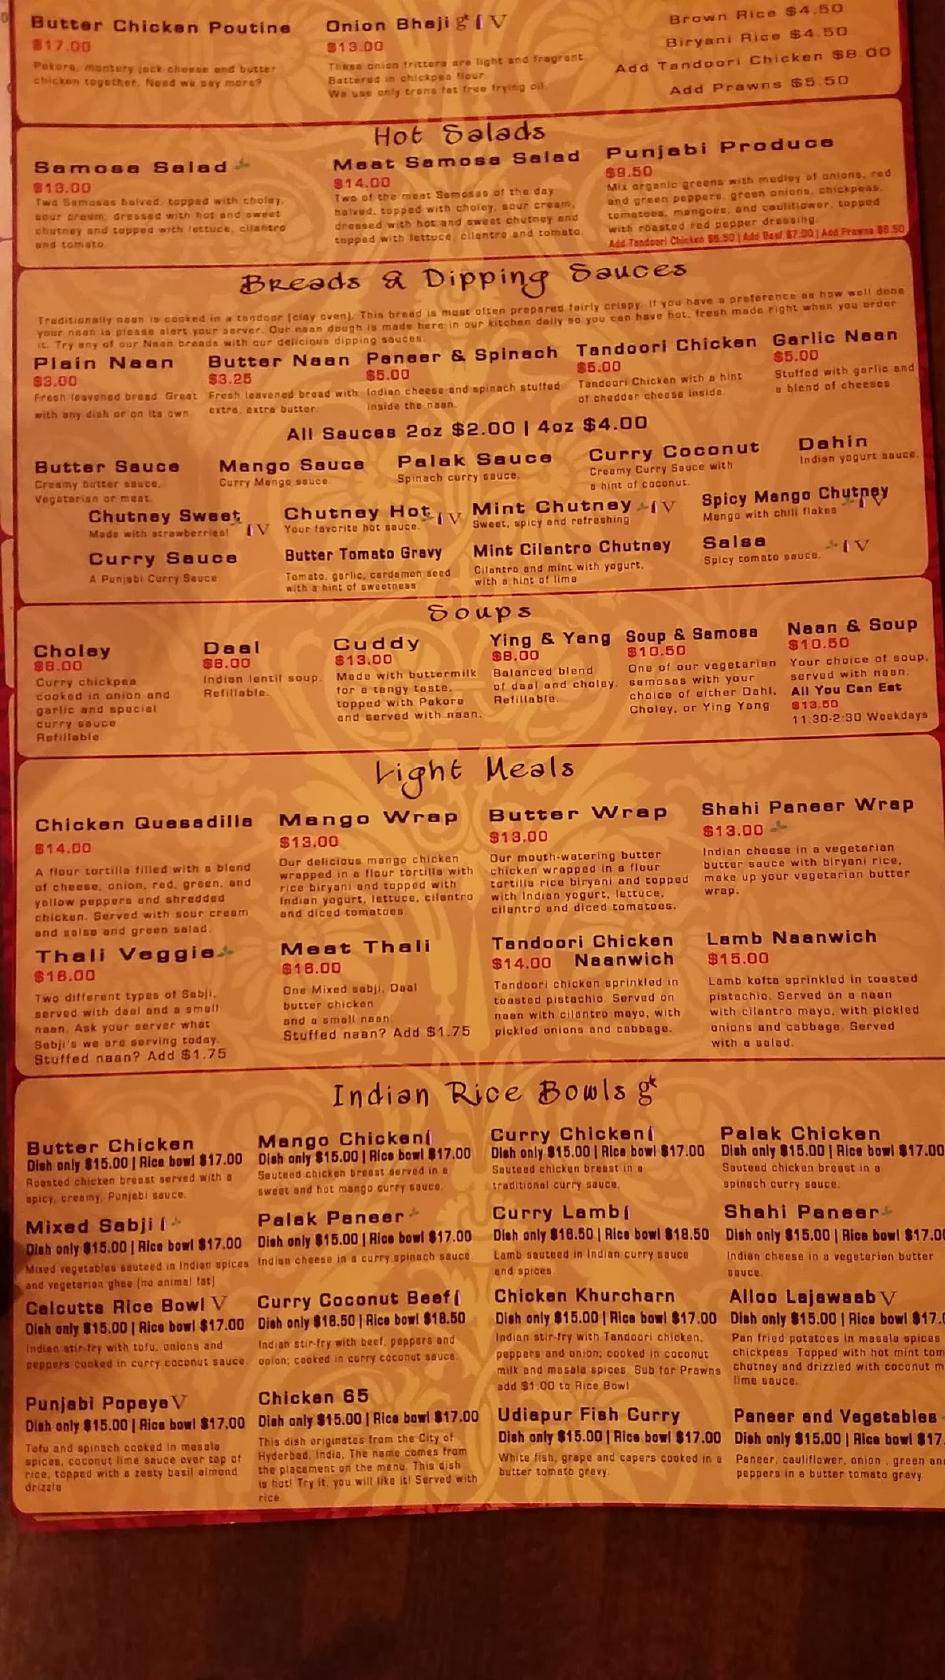 Butter Chicken Poutine
$17.00
Pakora, montery jack cheese and butter
chicken together. Need we say more?
Onion Bhaji gf V
$13.00
These onion fritters are light and fragrant.
Battered in chickpea flour.
We use only trans fat free frying oil.
Brown Rice $4.50
Biryani Rice $4.50
Add Tandoori Chicken $8.00
Add Prawns $5.50
Hot Salads
Samosa Salad
$13.00
Two Samosas halved, topped with choley,
sour cream, dressed with hot and sweet
chutney and topped with lettuce, cilantro
and tomato.
Meat Samosa Salad
$14.00
Two of the meat Samosas of the day
halved, topped with choley, sour cream,
dressed with hot and sweet chutney and
topped with lettuce, cilantro and tomato.
Punjabi Produce
$9.50
Mix organic greens with medley of onions, red
and green peppers, green onions, chickpeas,
tomatoes, mangoes, and cauliflower, topped
with roasted red pepper dressing.
Add Tandoori Chicken $6.50 | Add Beef $7.00 | Add Prawns $6.50
Breads & Dipping Sauces
Traditionally naan is cooked in a tandoor (clay oven). This bread is most often prepared fairly crispy. If you have a preference as how well done
your naan is please alert your server. Our naan dough is made here in our kitchen daily so you can have hot, fresh made right when you order
it. Try any of our Naan breads with our delicious dipping sauces.
Plain Naan
$3.00
Fresh leavened bread. Great
with any dish or on its own
Butter Naan
$3.25
Fresh leavened bread with
extra, extra butter.
Paneer & Spinach
$5.00
Indian cheese and spinach stuffed
inside the naan.
Tandoori Chicken
$5.00
Tandoori Chicken with a hint
of cheddar cheese inside.
Garlic Naan
$5.00
Stuffed with garlic and
a blend of cheeses.
All Sauces 2oz $2.00 | 4oz $4.00
Butter Sauce
Creamy butter sauce.
Vegetarian or meat.
Mango Sauce
Curry Mango sauce
Palak Sauce
Spinach curry sauce.
Curry Coconut
Creamy Curry Sauce with
a hint of coconut.
Dahin
Indian yogurt sauce.
Chutney Sweet V
Made with strawberries!
Chutney Hot V
Your favorite hot sauce.
Mint Chutney V
Sweet, spicy and refreshing
Spicy Mango Chutney V
Mango with chili flakes
Curry Sauce
A Punjabi Curry Sauce
Butter Tomato Gravy
Tomato, garlic, cardamon seed
with a hint of sweetness
Mint Cilantro Chutney
Cilantro and mint with yogurt,
with a hint of lime
Salsa V
Spicy tomato sauce.
Soups
Choley
$8.00
Curry chickpea
cooked in onion and
garlic and special
curry sauce.
Refillable
Daal
$8.00
Indian lentil soup.
Refillable.
Cuddy
$13.00
Made with buttermilk
for a tangy taste,
topped with Pakora
and served with naan.
Ying & Yang
$8.00
Balanced blend
of daal and choley.
Refillable.
Soup & Samosa
$10.50
One of our vegetarian
samosas with your
choice of either Dahl,
Choley, or Ying Yang
Naan & Soup
$10.50
Your choice of soup,
served with naan.
All You Can Eat
$13.50
11:30-2:30 Weekdays
Light Meals
Chicken Quesadilla
$14.00
A flour tortilla filled with a blend
of cheese, onion, red, green, and
yellow peppers and shredded
chicken. Served with sour cream
and salsa and green salad.
Mango Wrap
$13.00
Our delicious mango chicken
wrapped in a flour tortilla with
rice biryani and topped with
Indian yogurt, lettuce, cilantro
and diced tomatoes.
Butter Wrap
$13.00
Our mouth-watering butter
chicken wrapped in a flour
tortilla rice biryani and topped
with Indian yogurt, lettuce,
cilantro and diced tomatoes.
Shahi Paneer Wrap
$13.00
Indian cheese in a vegetarian
butter sauce with biryani rice,
make up your vegetarian butter
wrap.
Thali Veggie
$16.00
Two different types of Sabji,
served with daal and a small
naan. Ask your server what
Sabji's we are serving today.
Stuffed naan? Add $1.75
Meat Thali
$16.00
One Mixed sabji, Daal
butter chicken
and a small naan.
Stuffed naan? Add $1.75
Tandoori Chicken
$14.00 Naanwich
Tandoori chicken sprinkled in
toasted pistachio. Served on
naan with cilantro mayo, with
pickled onions and cabbage.
Lamb Naanwich
$15.00
Lamb kofta sprinkled in toasted
pistachio. Served on a naan
with cilantro mayo, with pickled
onions and cabbage. Served
with a salad.
Indian Rice Bowls gf
Butter Chicken
Dish only $15.00 | Rice bowl $17.00
Roasted chicken breast served with a
spicy, creamy, Punjabi sauce.
Mango Chicken
Dish only $15.00 | Rice bowl $17.00
Sauteed chicken breast served in a
sweet and hot mango curry sauce.
Curry Chicken
Dish only $15.00 | Rice bowl $17.00
Sauteed chicken breast in a
traditional curry sauce.
Palak Chicken
Dish only $15.00 | Rice bowl $17.00
Sauteed chicken breast in a
spinach curry sauce.
Mixed Sabji
Dish only $15.00 | Rice bowl $17.00
Mixed vegetables sauteed in Indian spices
and vegetarian ghee (no animal fat)
Palak Paneer
Dish only $15.00 | Rice bowl $17.00
Indian cheese in a curry spinach sauce
Curry Lamb
Dish only $16.50 | Rice bowl $18.50
Lamb sauteed in Indian curry sauce
and spices.
Shahi Paneer
Dish only $15.00 | Rice bowl $17.0
Indian cheese in a vegetarian butter
sauce.
Calcutta Rice Bowl V
Dish only $15.00 | Rice bowl $17.00
Indian stir-fry with tofu, onions and
peppers cooked in curry coconut sauce.
Curry Coconut Beef
Dish only $16.50 | Rice bowl $18.50
Indian stir-fry with beef, peppers and
onion; cooked in curry coconut sauce.
Chicken Khurcharn
Dish only $15.00 | Rice bowl $17.00
Indian stir-fry with Tandoori chicken,
peppers and onion; cooked in coconut
milk and masala spices. Sub for Prawns
add $1.00 to Rice Bowl
Alloo Lajawaab V
Dish only $15.00 | Rice bowl $17.0
Pan fried potatoes in masala spices
chickpeas. Topped with hot mint tom
chutney and drizzled with coconut m
lime sauce.
Punjabi Popeye V
Dish only $15.00 | Rice bowl $17.00
Tofu and spinach cooked in masala
spices, coconut lime sauce over top of
rice, topped with a zesty basil almond
drizzle
Chicken 65
Dish only $15.00 | Rice bowl $17.00
This dish originates from the City of
Hyderbad, India. The name comes from
the placement on the menu. This dish
is hot! Try it, you will like it! Served with
rice
Udiapur Fish Curry
Dish only $15.00 | Rice bowl $17.00
White fish, grape and capers cooked in a
butter tomato gravy.
Paneer and Vegetables
Dish only $15.00 | Rice bowl $17.
Paneer, cauliflower, onion , green an
peppers in a butter tomato gravy